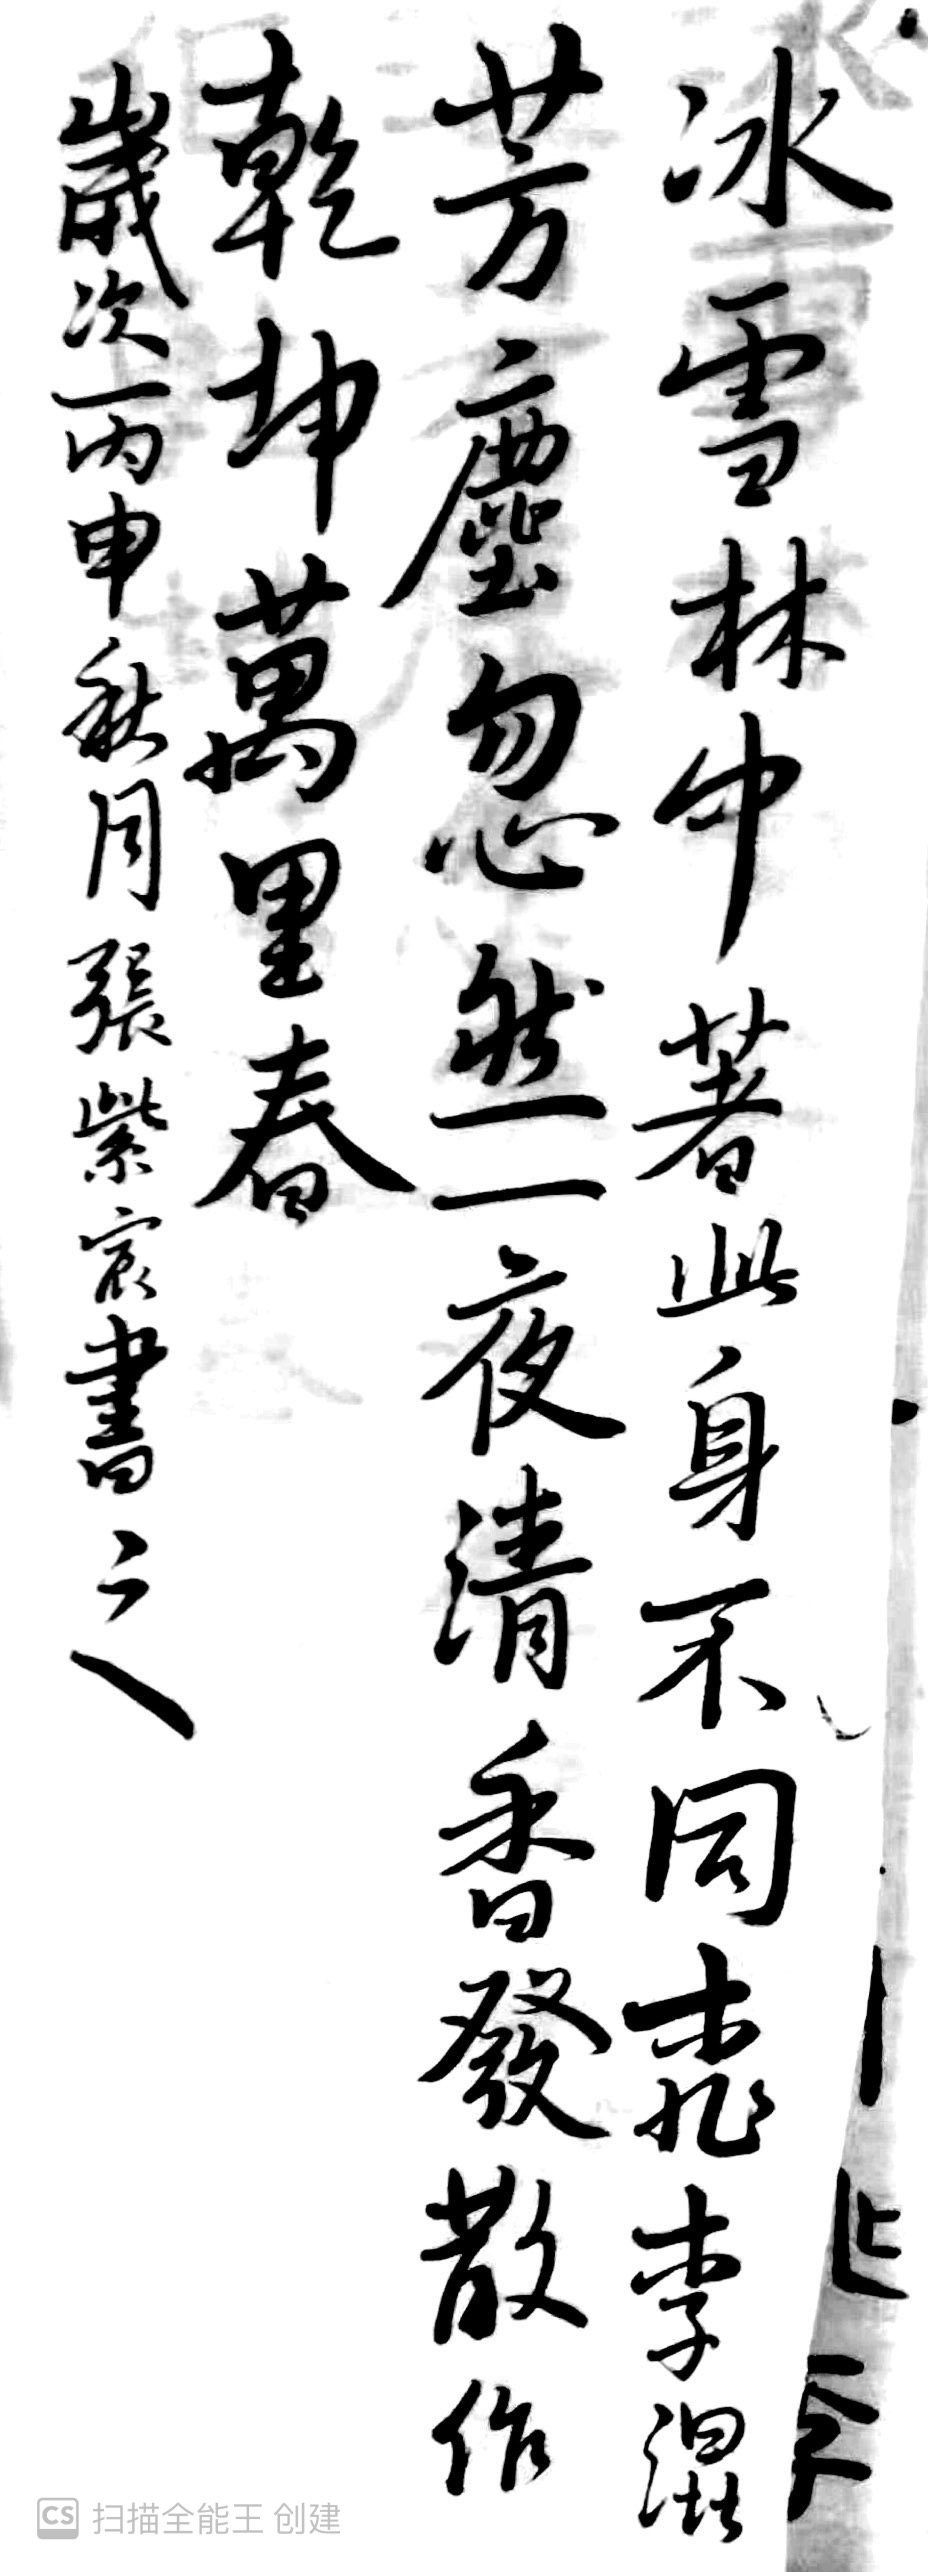 冰雪林中著此身不同桃李混
芳塵忽然一夜清香發散作
乾坤萬里春
歲次丙申秋月張紫宸書之
CS 扫描全能王 创建